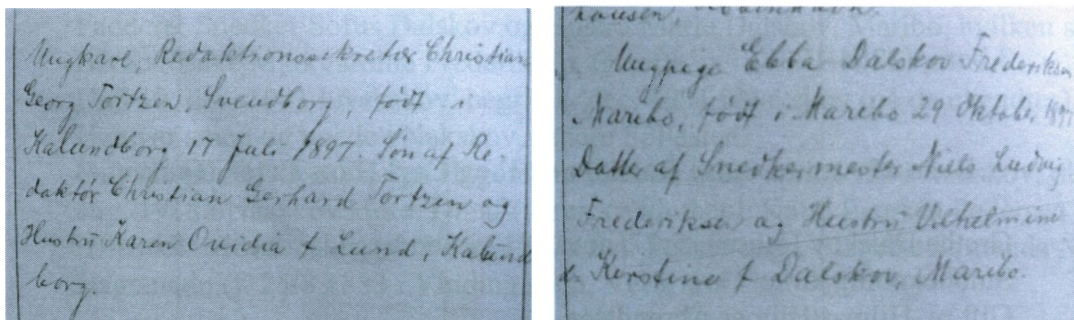 Ungkarl, Redaktionssekretær Christian
Georg Tortzen, Svendborg, født i
Kalundborg 17 Juli 1897. Søn af Re-
daktør Christian Gerhard Tortzen og
Hustru Karen Ovidia f Lund, Kalund
borg.
Ungpige Ebba Dalskov Frederiksen
Maribo, født i Maribo 29 Oktober 1897
Datter af Snedkermester Niels Ludvig
Frederiksen og Hustru Vilhelmine
Kerstine f Dalskov, Maribo.